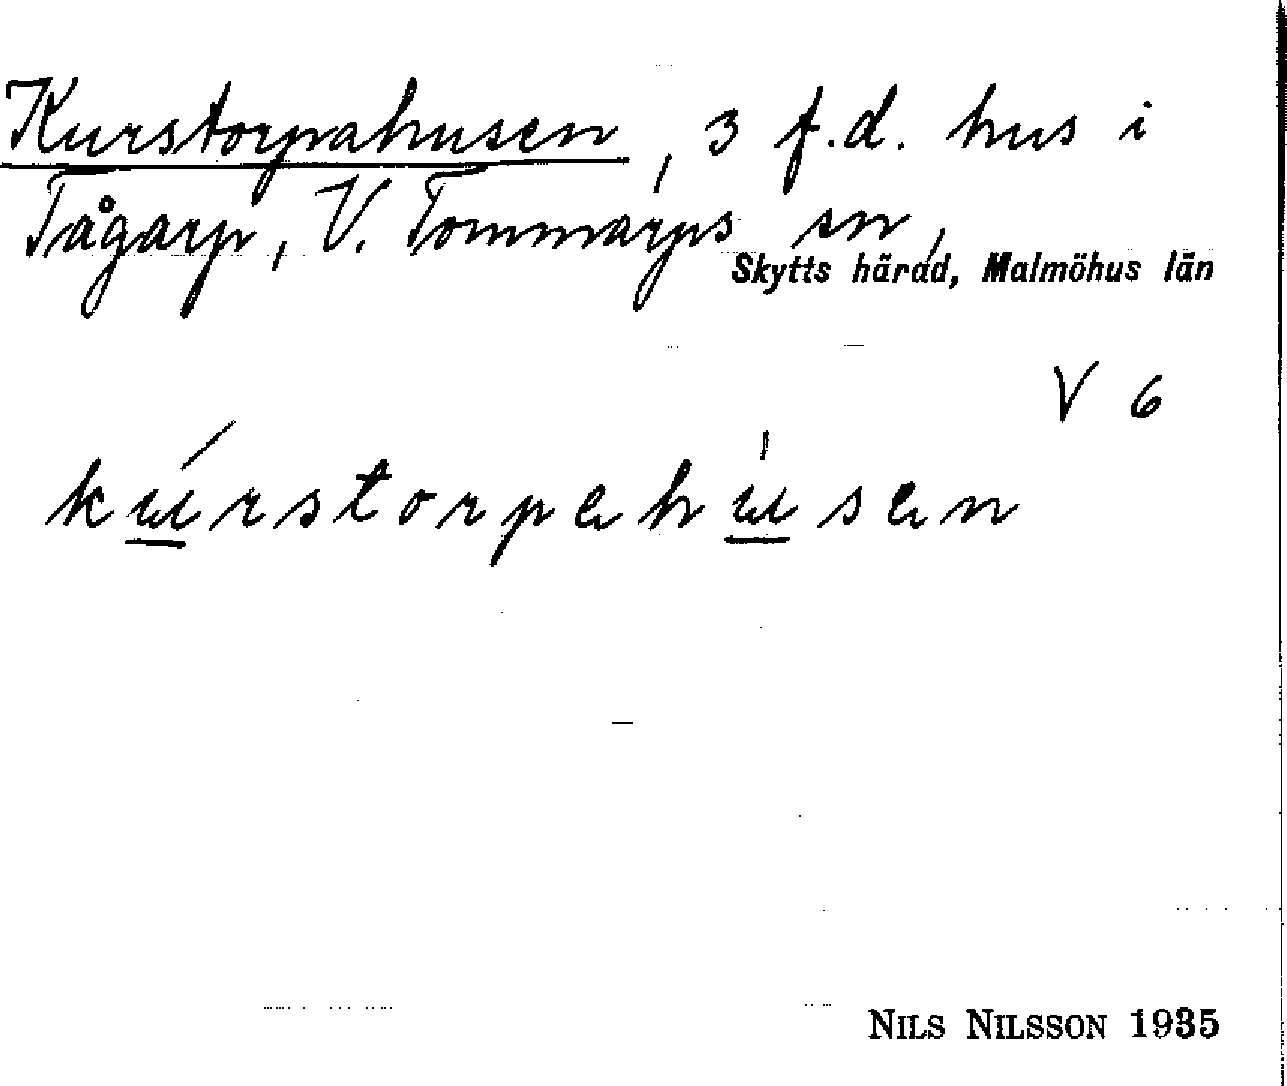 Kurstorpahusen, 3 f.d. hus i
Tågarp, V. Tommarps sn,
Skytts härad, Malmöhus län
V 6
kúrstorpehusen
NILS NILSSON 1935